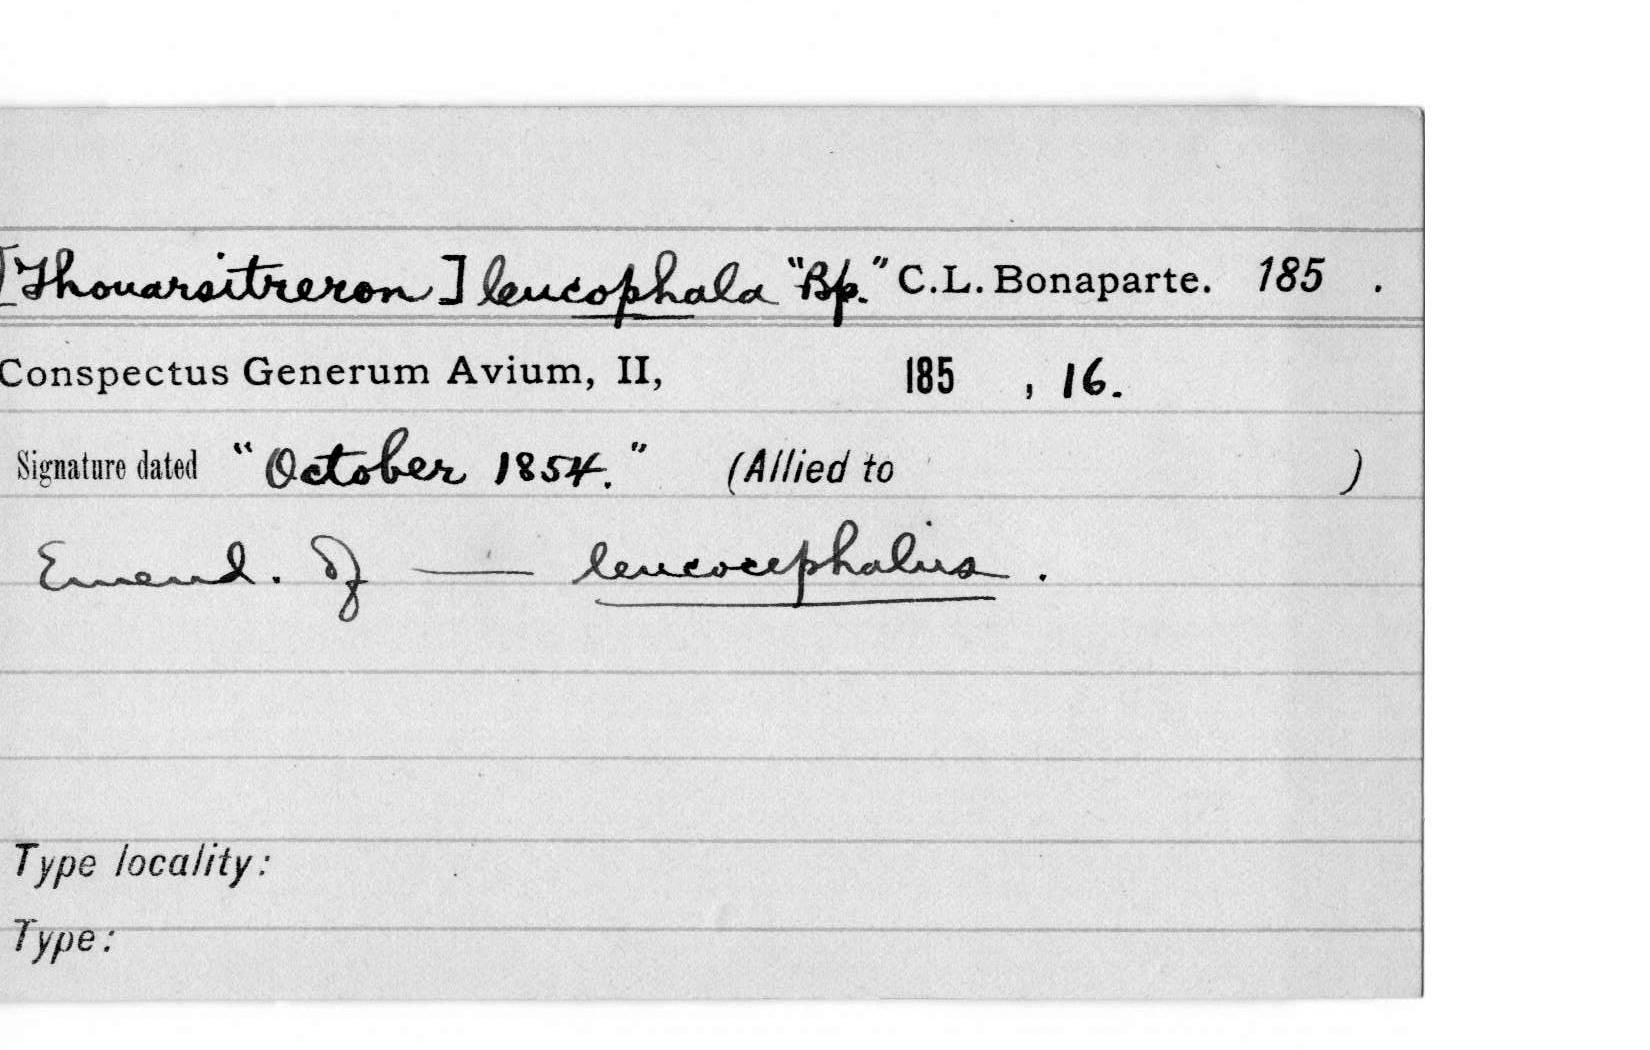 [Thouarsitreron] leucophala "Bp." C.L. Bonaparte. 185 .
Conspectus Generum Avium, II, 185 , 16.
Signature dated "October 1854." (Allied to )
Emend. of — leucocephalus.
Type locality:
Type: